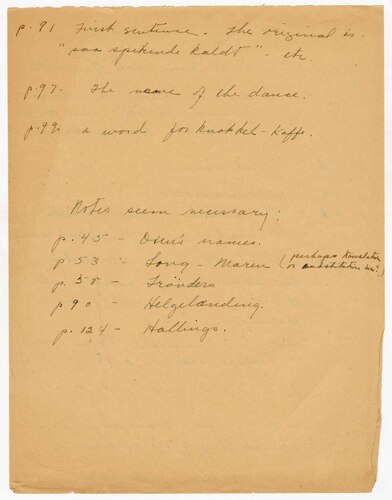 p. 91 First sentence. The original is
"saa spikende kaldt" - etc
p. 97. The name of the dance.
p. 99. a word for Knokkel-Kaffe.
Notes seem necessary:
p. 45 - names.
p. 53 - Song - Maren (perhaps translate
or substitute
p. 58 - Trönders
p 90 - Helgelænding.
p. 124 - Hallings.